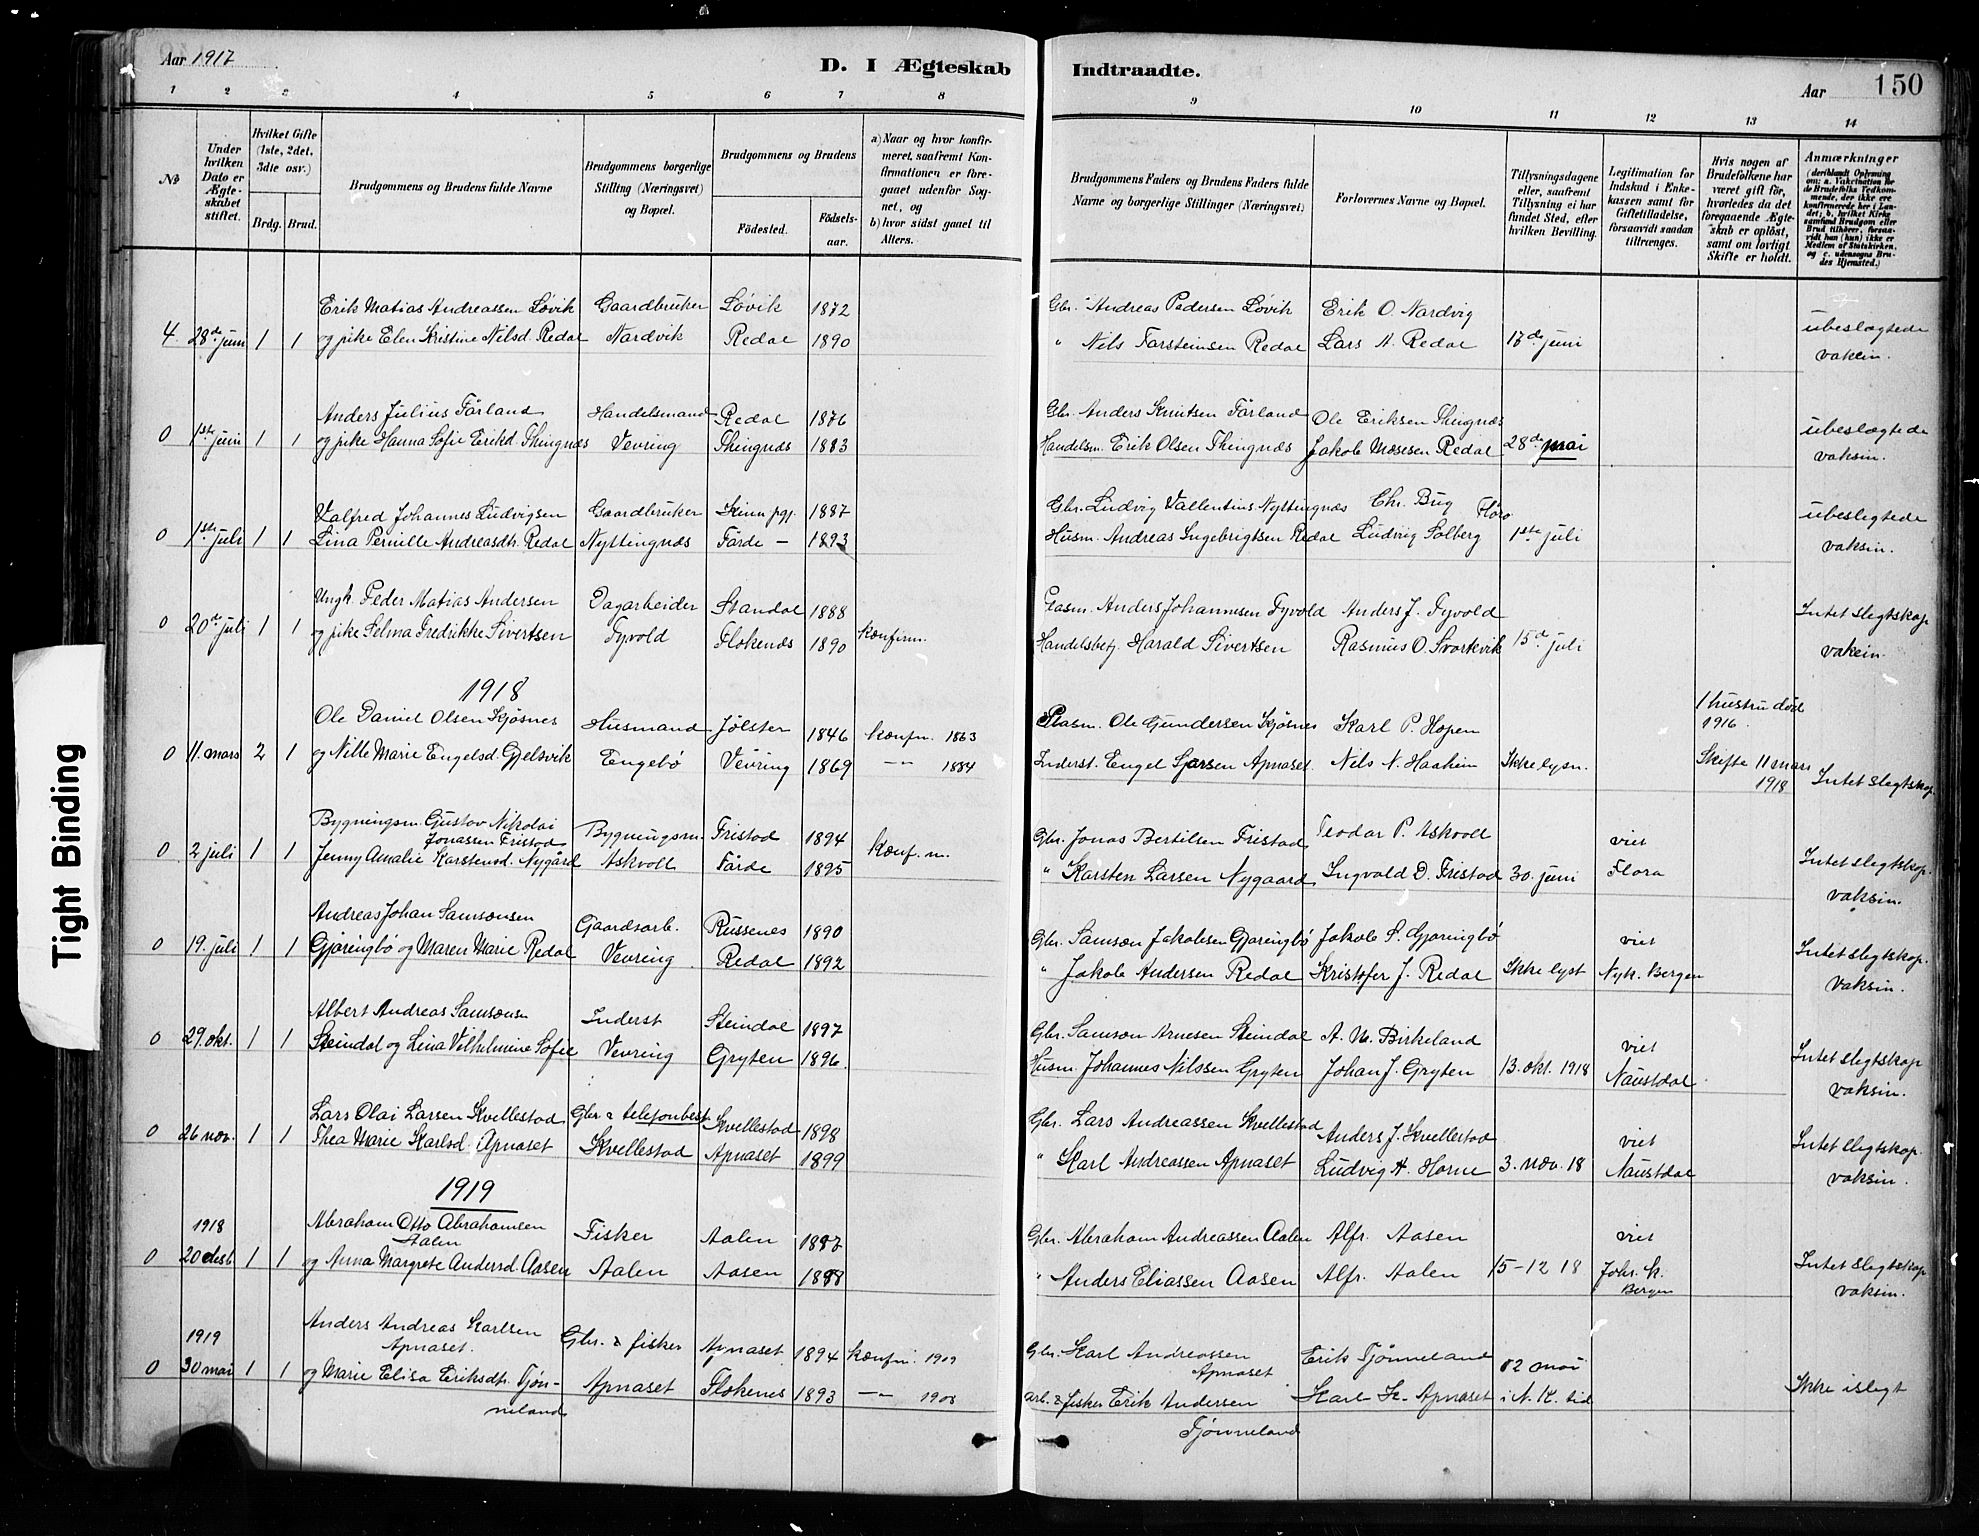 Aar 1917
D. I Ægteskab Indtraadte.
Aar 150
1 2 3 4 5 6 7 8 9 10 11 12 13 14
No
Under hvilken Dato er Ægteskabet stiftet.
Hvilket Gifte (1ste, 2det, 3die osv.)
Brdg. Brud.
Brudgommens og Brudens fulde Navne
Brudgommens borgerlige Stilling (Næringsvei) og Bopæl.
Brudgommens og Brudens
Fødested. Fødselsaar.
a) Naar og hvor konfirmeret, saafremt Konfirmationen er foregaaet udenfor Sognet, og
b) hvor sidst gaaet til Alters.
Brudgommens Faders og Brudens Faders fulde Navne og borgerlige Stillinger (Næringsvei)
Forlovernes Navne og Bopæl.
Tillysningsdagene eller, saafremt Tillysning ei har fundet Sted, efter hvilken Bevilling.
Legitimation for Indskud i Enkekassen samt for Giftetilladelse, forsaavidt saadan tiltrænges.
Hvis nogen af Brudefolkene har været gift før, hvorledes da det foregaaende Ægteskab er opløst, samt om lovligt Skifte er holdt.
Anmærkninger (deriblandt Oplysning om: a. Vakcination for de Brudefolks Vedkommende, der ikke ere konfirmerede her i Landet; b. hvilket Kirkesamfund Brudgom eller Brud tilhører, forsaavidt han (hun) ikke er Medlem af Statskirken, og c. udensogns Brudes Hjemsted.)
Erik Matias Andreassen Løvik Gaardbruker Løvik 1872 Gbr. Andreas Pedersen Løvik Erik O. Nardvig
4. 28de juni 1 1 og pike Elen Kristine Nilsd. Redal Nardvik Redal 1890 " Nils Torsteinsen Redal Lars N. Redal 17de juni ubeslægtede
vakcin.
Anders Julius Førland Handelsmand Redal 1876 Gbr. Anders Knutsen Førland Ole Eriksen Thingnæs
0 1ste juni 1 1 og pike Hanna Sofie Eriksd. Thingnæs Vevring Thingnæs 1883 Handelsm. Erik Olsen Thingnæs Jakob Mosesen Redal 28de mai ubeslægtede
vaksin.
Valfred Johannes Ludvigsen Gaardbruker Kinn pgj. 1887 Gbr. Ludvig Vallentins Nyttingnæs Chr. Bug Florø
0 1ste juli 1 1 Lina Pernille Andreasdtr. Redal Nyttingnæs Førde - 1893 Husm. Andreas Ingebrigtsen Redal Ludvig Solberg 1ste juli ubeslegtede
vaksin.
Ungk. Peder Matias Andersen Dagarbeider Standal 1888 Plasm. Anders Johannesen Tyvold Anders J. Tyvold
0 20de juli 1 1 og pike Selma Fredrikke Sivertsen Tyvold Flokenæs 1890 konfirm. Handelsbetj. Harald Sivertsen Rasmus O. Svortevik 15de juli Intet slegtskap
vakcin.
1918
Ole Daniel Olsen Kjøsnes Husmand Jølster 1846 konfm. 1863 Plasm. Ole Gundersen Kjøsnes Karl P. Hopen 1 hustru død 1916.
0 11. mars 2 1 og Nille Marie Engelsd. Gjelsvik Engebø Vevring 1869 -"- 1884 Inderst. Engel Apnaset. Nils N. Haaheim Ikke lysn. Skifte 11 mars 1918 Intet slegtskap.
Bygningsm. Gustav Nikolai Jonassen Fristad Bygningsm. Fristad 1894 Gbr. Jonas Bertilsen Fristad Teodor P. Askvoll viet
0 2 juli 1 1 Jenny Amalie Karstensd. Nygård Askvoll Førde 1895 konf. n. " Karsten Larsen Nygaard Ingvald D. Fristad 30. juni Flora Intet slegtskap.
vaksin.
Andreas Johan Samsonsen Gaardsarb. Russenes 1890 Gbr. Samson Jakobsen Gjøringbø Jakob S. Gjøringbø viet
0 19. juli 1 1 Gjøringbø og Maren Marie Redal Vevring Redal 1892 " Jakob Andersen Redal Kristofer J. Redal Ikke lyst Nyk. Bergen Intet slegtskap.
vaksin.
Albert Andreas Samsonsen Inderst Steindal 1897 Gbr. Samson Arnesen Steindal A. M. Birkeland viet
0 29. okt. 1 1 Steindal og Lina Vilhelmine Sofie Vevring Gryten 1896. Husm. Johannes Nilssen Gryten Johan J. Gryten 13. okt. 1918 Naustdal Intet slegtskap
vaksin.
Lars Olai Larsen Kvellestad Gbr & telefonbest. Kvellestad 1898 Gbr. Lars Andreassen Kvellestad Anders J. Kvellestad viet
0 26 nov. 1 1 Thea Marie Karlsd. Apnaset Kvellestad Apnaset 1899 " Karl Andreassen Apnaset Ludvig A. Horne 3. nov. 18 Naustdal Intet slegtskap.
vaksin.
1919
1918 Abraham Otto Abrahamsen Aalen Fisker Aalen 1887 Gbr. Abraham Andreassen Aalen Alfr. Aasen viet
0 20 desb. 1 1 og Anna Margrete Andersd. Aasen Aalen Aasen 1888 " Anders Eliassen Aasen Alfr. Aalen 15-12 18 Joh. k. Bergen Intet slegtskap
vaksin.
1919 Anders Andreas Karlsen Apnaset. Gbr. & fisker Apnaset 1894 konfm. 1909 Gbr. Karl Andreassen Apnaset Erik Tjønneland 12 mai
0 30 mai 1 1 og Marie Elisa Eriksdtr. Tjønneland Apnaset Flokenes 1893 -"- 1908 arb. & fisker Erik Andersen Tjønneland Karl K. Apnaset i N. K. tid Ikke i slegt
Tight Binding